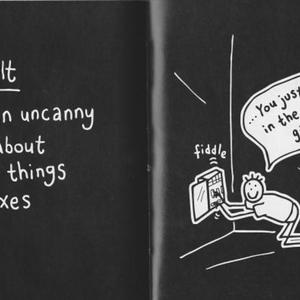 lt
n uncanny
about
things
xes
fiddle
...You just
in the
g